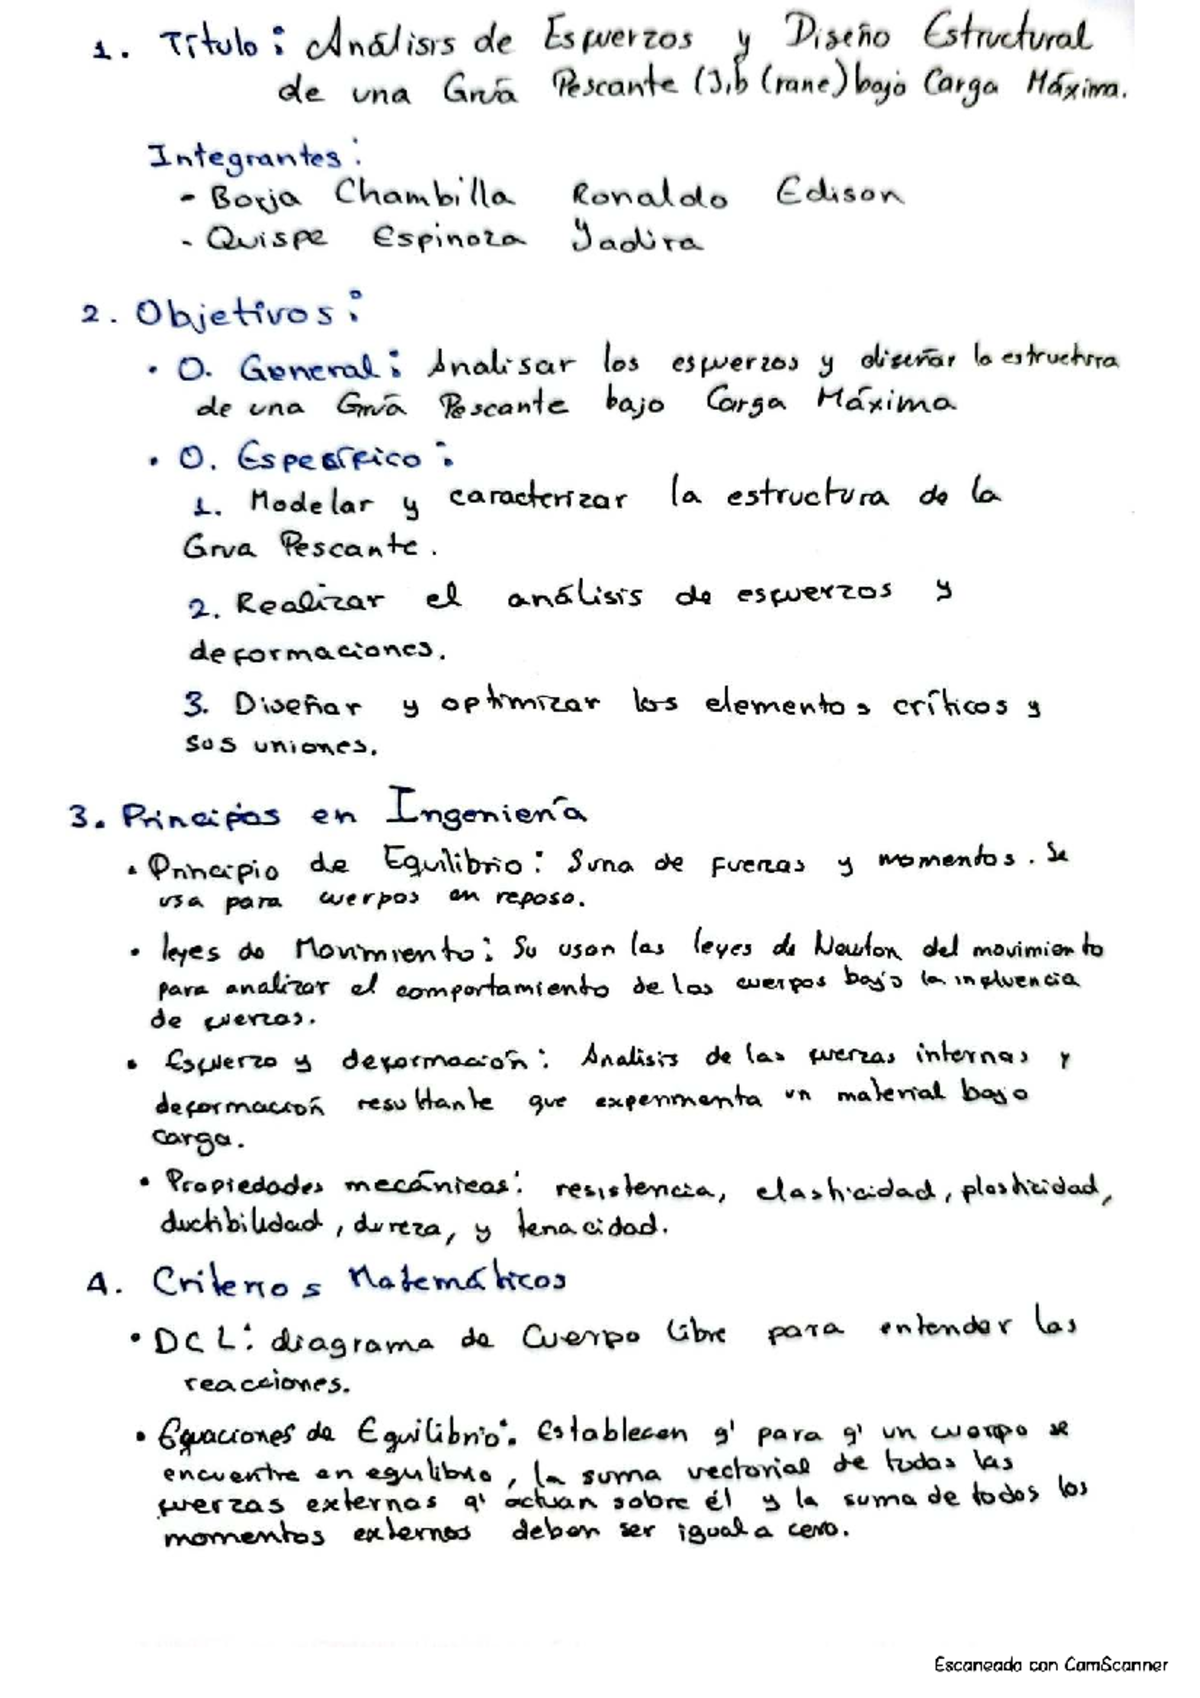 1. Título: Análisis de Esfuerzos y Diseño Estructural
de una Grúa Pescante (Jib Crane) bajo Carga Máxima.
Integrantes:
- Borja Chambilla Ronaldo Edison
- Quispe Espinoza Yadira
2. Objetivos:
• O. General: Analisar los esfuerzos y diseñar la estructura
de una Grúa Pescante bajo Carga Máxima
• O. Específico:
1. Modelar y caracterizar la estructura de la
Grua Pescante.
2. Realizar el análisis de esfuerzos y
deformaciones.
3. Diseñar y optimizar los elementos críticos y
sus uniones.
3. Principios en Ingeniería
• Principio de Equilibrio: Suma de fuerzas y momentos. Se
usa para cuerpos en reposo.
• leyes de Movimiento: Su usan las leyes de Newton del movimiento
para analizar el comportamiento de los cuerpos bajo la influencia
de fuerzas.
• Esfuerzo y deformación: Analisis de las fuerzas internas y
deformación resultante que experimenta un material bajo
carga.
• Propiedades mecánicas: resistencia, elasticidad, plasticidad,
ductibilidad, dureza, y tenacidad.
4. Criterios Matemáticos
• DCL: diagrama de Cuerpo libre para entender las
reacciones.
• Equaciones de Equilibrio: Establecen q' para q' un cuerpo se
encuentre en equlibrio, la suma vectorial de todas las
fuerzas externas q' actuan sobre él y la suma de todos los
momentos externos deben ser igual a cero.
Escaneado con CamScanner